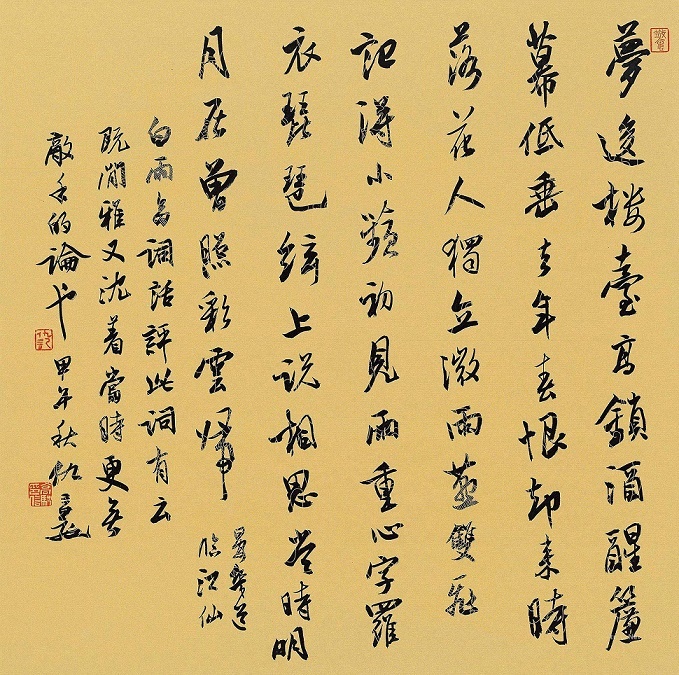 夢後樓臺高鎖酒醒簾
幕低垂去年春恨却来時
落花人獨立微雨燕雙飛
記得小蘋初見兩重心字羅
衣琵琶絃上説相思當時明
月在曾照彩雲歸
晏幾道
臨江仙
白雨齋詞話評此詞有云
既閒雅又沈着當時更無
敵手的論也 甲午秋仇